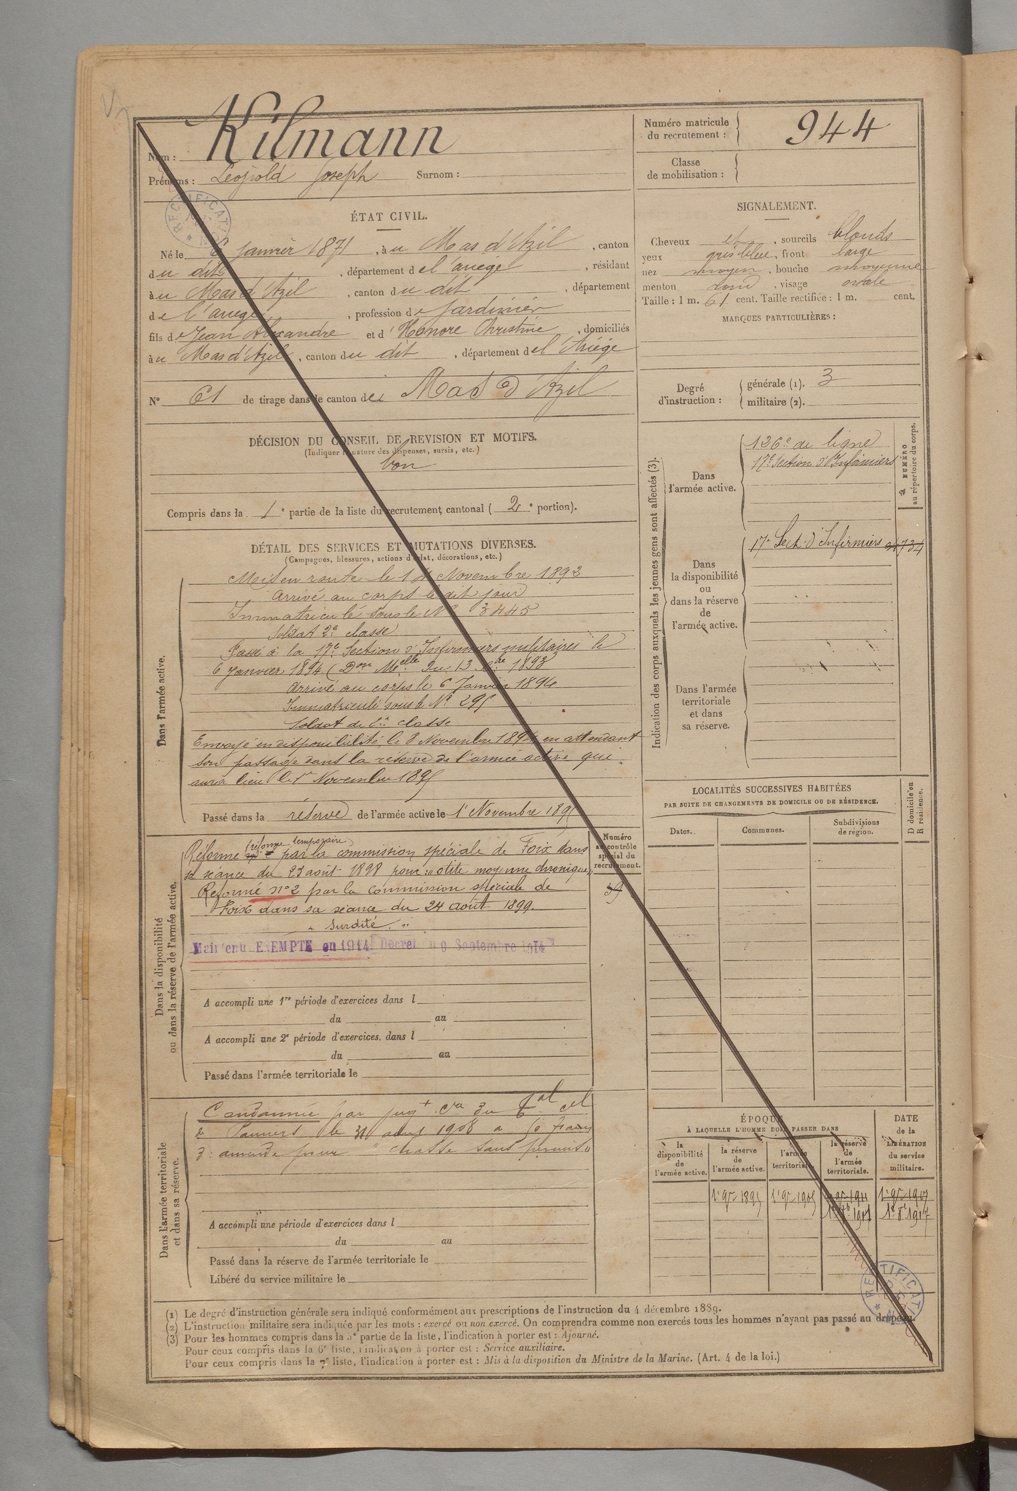 Nom : Kilmann
Prénoms : Leopold Joseph Surnom :
Numéro matricule du recrutement : 944
Classe de mobilisation :
RECTIFICATION
ÉTAT CIVIL.
Né le 6 Janvier 1871, à u Mas d'Azil, canton
du dit, département de l'ariege, résidant
à u Mas d'Azil, canton du dit, département
de l'ariege, profession de Jardinier
fils de Jean Alexandre et d'Honore Christine, domiciliés
à u Mas d'Azil, canton du dit, département de l'Ariège
N° 61 de tirage dans le canton de Mas d'Azil
DÉCISION DU CONSEIL DE REVISION ET MOTIFS.
(Indiquer la nature des dispenses, sursis, etc.)
bon
Compris dans la 1e partie de la liste du recrutement cantonal (2e portion).
SIGNALEMENT.
Cheveux et, sourcils blonds
yeux gris bleu, front large
nez moyen, bouche moyenne
menton rond, visage ovale
Taille : 1 m. 61 cent. Taille rectifiée : 1 m. cent.
MARQUES PARTICULIÈRES :
Degré d'instruction : générale (1). 3
militaire (2).
Indication des corps auxquels les jeunes gens sont affectés (3).
NUMÉRO au répertoire du corps.
Dans l'armée active.
126e de ligne
17e Section d'Infirmiers
Dans la disponibilité ou dans la réserve de l'armée active.
17e Sect. d'Infirmiers
Dans l'armée territoriale et dans sa réserve.
DÉTAIL DES SERVICES ET MUTATIONS DIVERSES.
(Campagnes, blessures, actions d'éclat, décorations, etc.)
Dans l'armée active.
Mis en route le 14 Novembre 1892
Arrivé au corps le dit jour
Immatriculé sous le N° 3445
Soldat 2e classe
Passé à la 17e Section d'Infirmiers militaires le
6 Janvier 1894 (Don Melle du 13 Xbre 1893
Arrivé au corps le 6 Janvier 1894
Immatriculé sous le N° 295
Soldat de 2e classe
Envoyé en disponibilité le 8 Novembre 1894 en attendant
son passage dans la réserve de l'armée active qui
aura lieu le 1er Novembre 1895
Passé dans la réserve de l'armée active le 1er Novembre 1895
Dans la disponibilité ou dans la réserve de l'armée active.
Numéro au contrôle spécial du recrutement.
(réforme temporaire
Réformé par la commission spéciale de Foix dans
sa séance du 25 août 1898 pour otite moyenne chronique
Réformé n° 2 par la Commission spéciale de
Foix dans sa séance du 24 août 1899.
" Surdité. "
Maintenu EXEMPTÉ en 1914 Décret du 9 Septembre 1914
A accompli une 1re période d'exercices dans l
du au
A accompli une 2e période d'exercices, dans l
du au
Passé dans l'armée territoriale le
Dans l'armée territoriale et dans sa réserve.
Condamné par jugt du Tal cel
Pamiers, le 1908 à 50 francs
amende pour " chasse sans permis "
A accompli une période d'exercices dans l
du au
Passé dans la réserve de l'armée territoriale le
Libéré du service militaire le
LOCALITÉS SUCCESSIVES HABITÉES
PAR SUITE DE CHANGEMENTS DE DOMICILE OU DE RÉSIDENCE.
Dates. Communes. Subdivisions de région. D domicile ou R résidence.
ÉPOQUE
À LAQUELLE L'HOMME DOIT PASSER DANS
la disponibilité de l'armée active.
la réserve de l'armée active.
l'armée territoriale.
la réserve de l'armée territoriale.
DATE de la LIBÉRATION du service militaire.
1er 9bre 1895 1er 9bre 1905 1er 9bre 1911 1er 9bre 1917
RECTIFICATION
(1) Le degré d'instruction générale sera indiqué conformément aux prescriptions de l'instruction du 4 décembre 1889.
(2) L'instruction militaire sera indiquée par les mots : exercé ou non exercé. On comprendra comme non exercés tous les hommes n'ayant pas passé au drapeau.
(3) Pour les hommes compris dans la 4e partie de la liste, l'indication à porter est : Ajourné.
Pour ceux compris dans la 6e liste, l'indication à porter est : Service auxiliaire.
Pour ceux compris dans la 7e liste, l'indication à porter est : Mis à la disposition du Ministre de la Marine. (Art. 4 de la loi.)